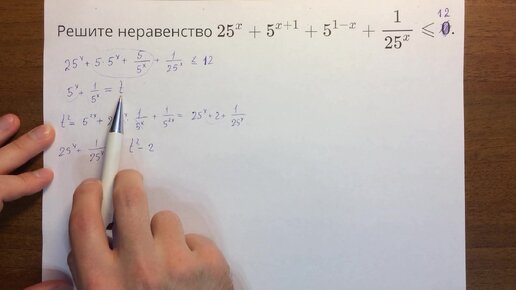 Решите неравенство 25^x + 5^{x+1} + 5^{1−x} + 1/25^x ⩽ 12.
25^x + 5·5^x + 5/5^x + 1/25^x ≤ 12
5^x + 1/5^x = t
t² = 5^{2x} + 2 · 1/5^x + 1/5^{2x} = 25^x + 2 + 1/25^x
25^x + 1/25^x t² − 2